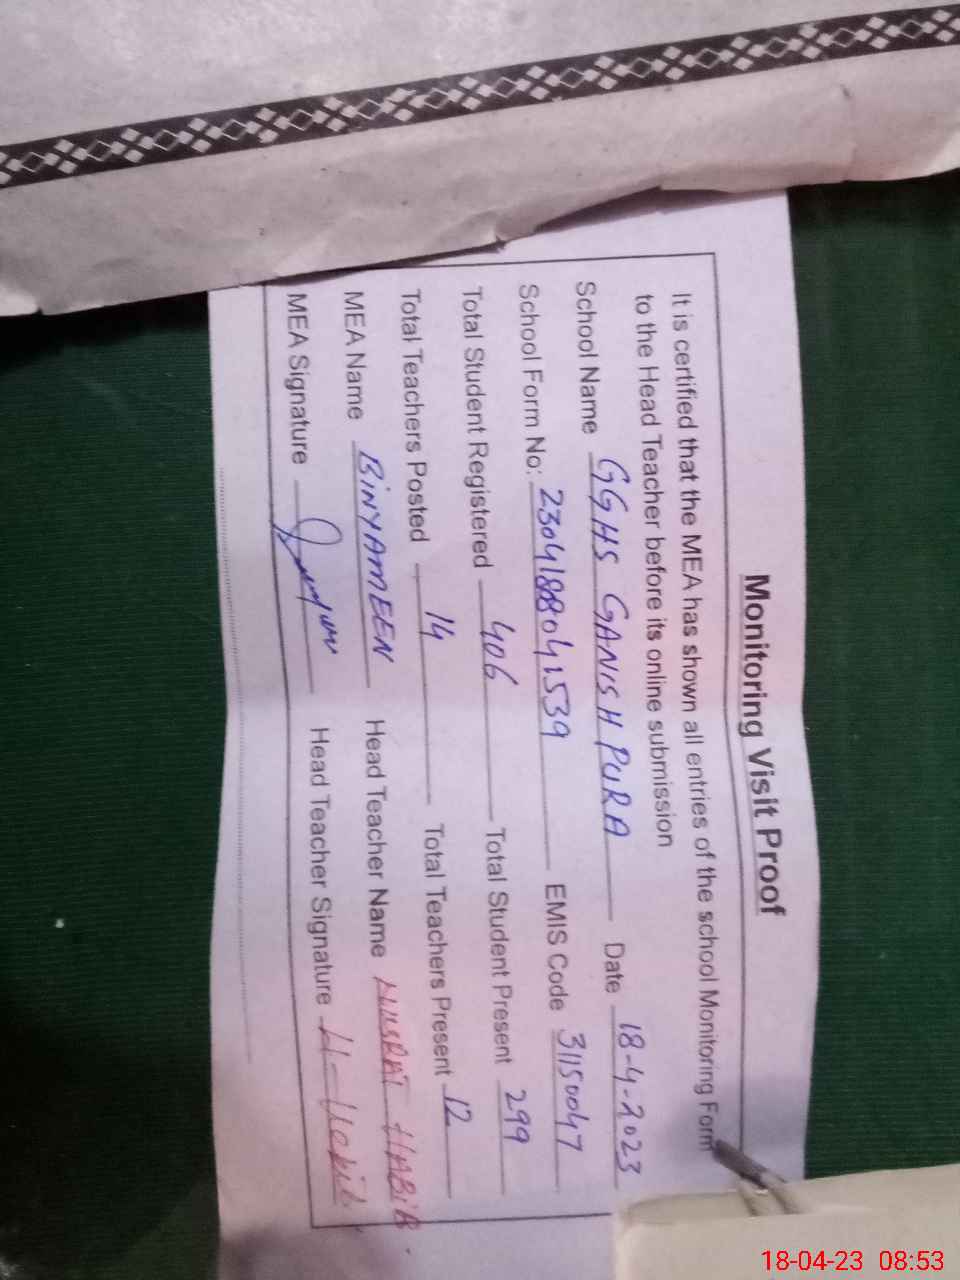 Monitoring Visit Proof
It is certified that the MEA has shown all entries of the school Monitoring Form
to the Head Teacher before its online submission
School Name GGHS GANISH PURA Date 18-4-2023
School Form No: 2304188041539 EMIS Code 31150047
Total Student Registered 406 Total Student Present 299
Total Teachers Posted 14 Total Teachers Present 12
MEA Name BINYAMEEN Head Teacher Name NUSRAT HABIB
MEA Signature Head Teacher Signature
18-04-23 08:53